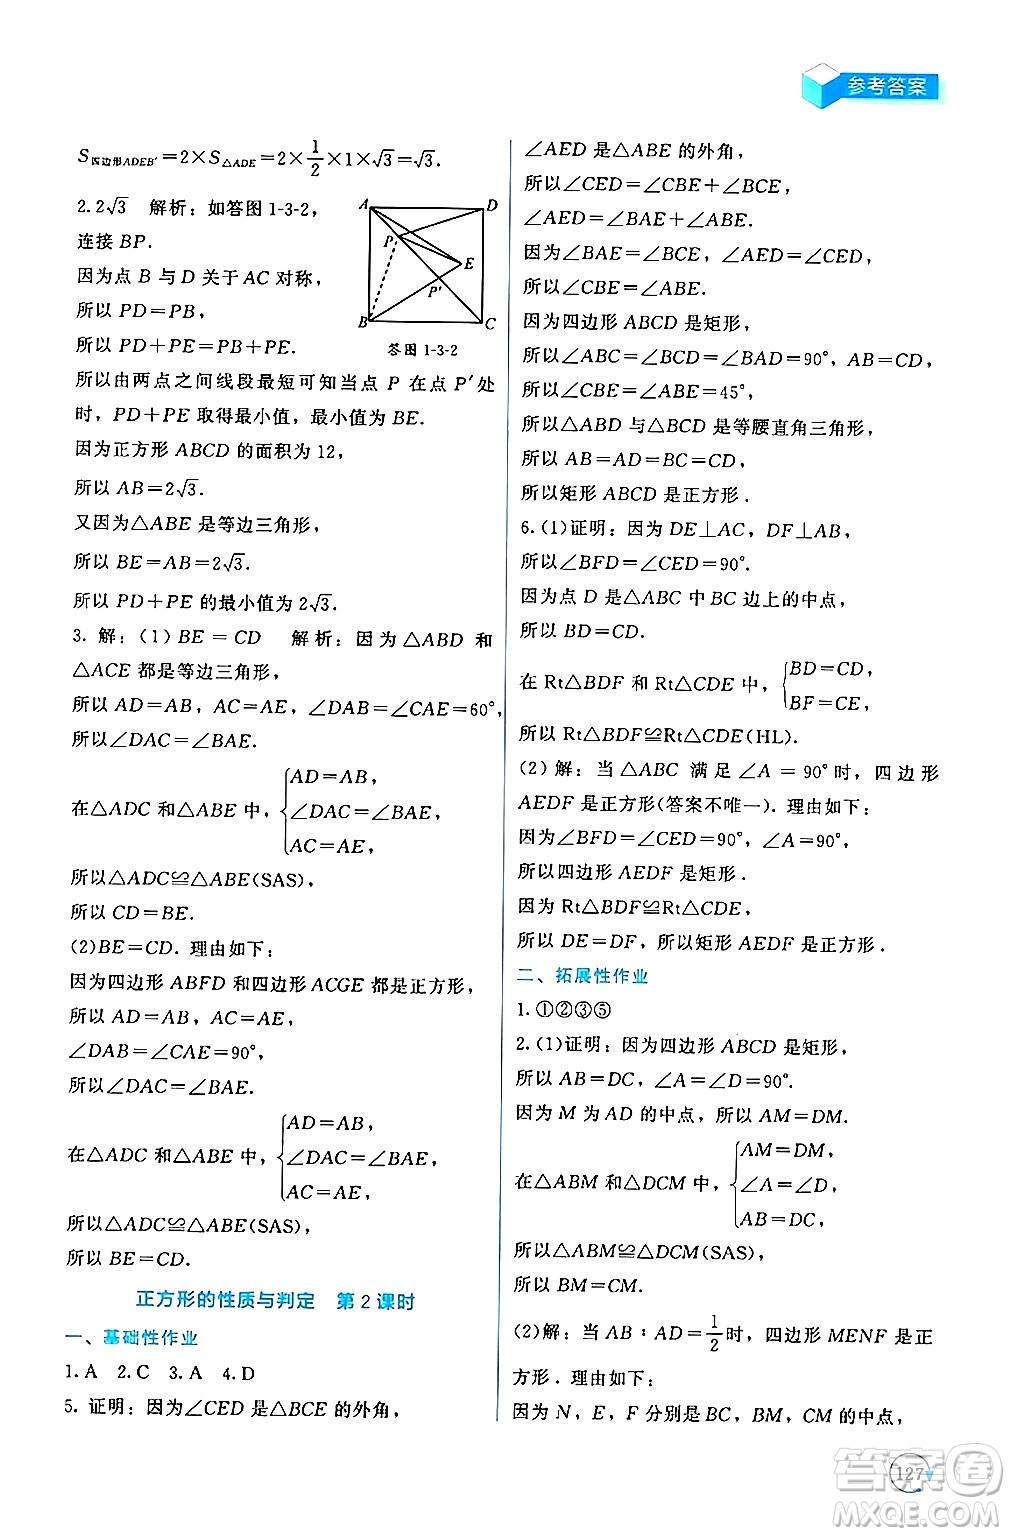 参考答案
S四边形ADEB′=2×S△ADE=2×1/2×1×√3=√3.
2.2√3 解析：如答图 1-3-2,
连接 BP.
因为点 B 与 D 关于 AC 对称,
所以 PD=PB,
所以 PD+PE=PB+PE.
A D P E P′ B C
答图 1-3-2
所以由两点之间线段最短可知当点 P 在点 P′处
时, PD+PE 取得最小值, 最小值为 BE.
因为正方形 ABCD 的面积为 12,
所以 AB=2√3.
又因为△ABE 是等边三角形,
所以 BE=AB=2√3.
所以 PD+PE 的最小值为 2√3.
3. 解：(1)BE=CD 解析：因为△ABD 和
△ACE 都是等边三角形,
所以 AD=AB, AC=AE, ∠DAB=∠CAE=60°,
所以∠DAC=∠BAE.
在△ADC 和△ABE 中, {AD=AB,
∠DAC=∠BAE,
AC=AE,
所以△ADC≌△ABE(SAS),
所以 CD=BE.
(2)BE=CD. 理由如下：
因为四边形 ABFD 和四边形 ACGE 是正方形,
所以 AD=AB, AC=AE,
∠DAB=∠CAE=90°,
所以∠DAC=∠BAE.
在△ADC 和△ABE 中, {AD=AB,
∠DAC=∠BAE,
AC=AE,
所以△ADC≌△ABE(SAS),
所以 BE=CD.
正方形的性质与判定 第 2 课时
一、基础性作业
1. A 2. C 3. A 4. D
5. 证明：因为∠CED 是△BCE 的外角,
∠AED 是△ABE 的外角,
所以∠CED=∠CBE+∠BCE,
∠AED=∠BAE+∠ABE.
因为∠BAE=∠BCE, ∠AED=∠CED,
所以∠CBE=∠ABE.
因为四边形 ABCD 是矩形,
所以∠ABC=∠BCD=∠BAD=90°, AB=CD,
所以∠CBE=∠ABE=45°,
所以△ABD 与△BCD 是等腰直角三角形,
所以 AB=AD=BC=CD,
所以矩形 ABCD 是正方形.
6. (1)证明：因为 DE⊥AC, DF⊥AB,
所以∠BFD=∠CED=90°.
因为点 D 是△ABC 中 BC 边上的中点,
所以 BD=CD.
在 Rt△BDF 和 Rt△CDE 中, {BD=CD,
BF=CE,
所以 Rt△BDF≌Rt△CDE(HL).
(2)解：当△ABC 满足∠A=90°时, 四边形
AEDF 是正方形(答案不唯一). 理由如下：
因为∠BFD=∠CED=90°, ∠A=90°,
所以四边形 AEDF 是矩形.
因为 Rt△BDF≌Rt△CDE,
所以 DE=DF, 所以矩形 AEDF 是正方形.
二、拓展性作业
1. ①②③⑤
2. (1)证明：因为四边形 ABCD 是矩形,
所以 AB=DC, ∠A=∠D=90°.
因为 M 为 AD 的中点, 所以 AM=DM.
在△ABM 和△DCM 中, {AM=DM,
∠A=∠D,
AB=DC,
所以△ABM≌△DCM(SAS),
所以 BM=CM.
(2)解：当 AB∶AD=1/2时, 四边形 MENF 是正
方形. 理由如下：
因为 N, E, F 分别是 BC, BM, CM 的中点,
127
答案卷
MXQE.COM